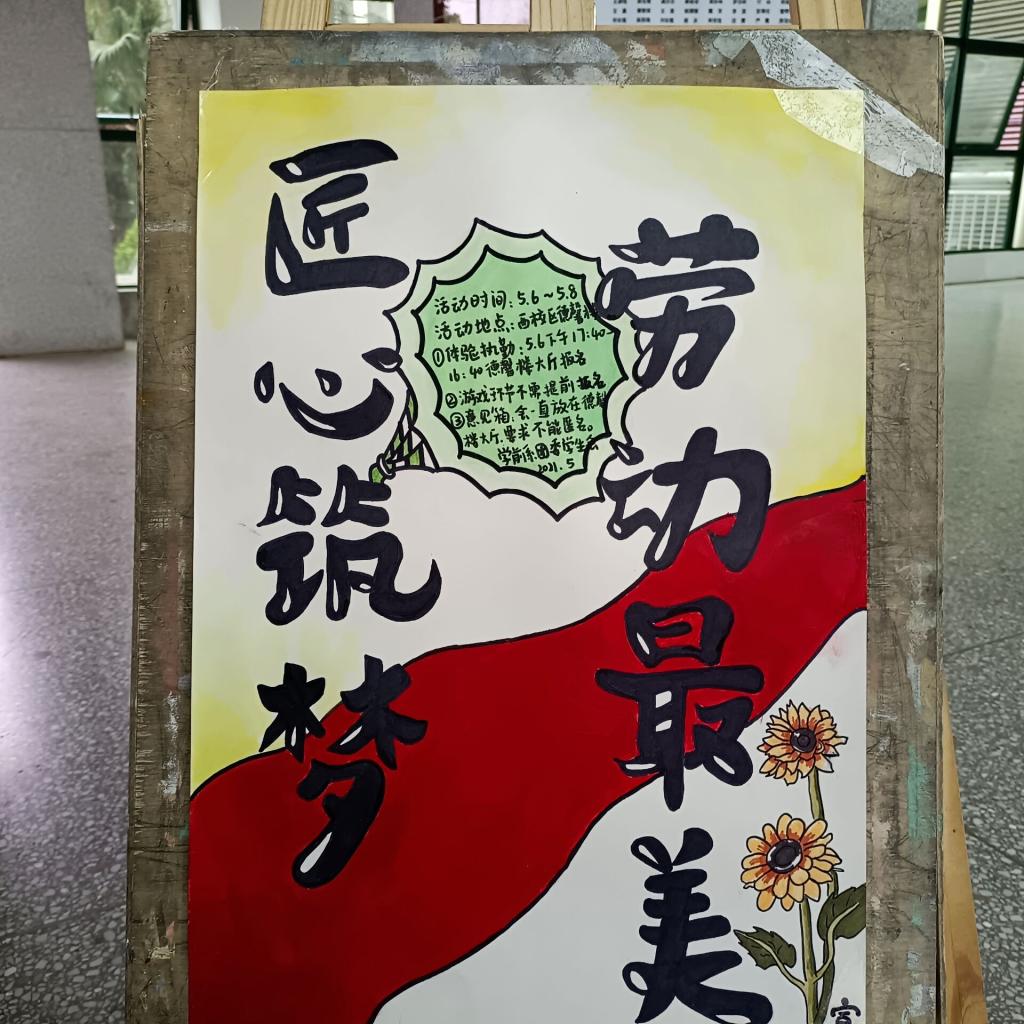 匠心筑梦
劳动最美
活动时间:5.6~5.8
活动地点:西校区德馨楼
①体验执勤:5.6下午17:40-
16:40德馨楼大厅报名
②游戏环节不需提前报名
③意见箱:会一直放在德馨
楼大厅,要求不能匿名。
学前系团委学生会
2021.5
宣